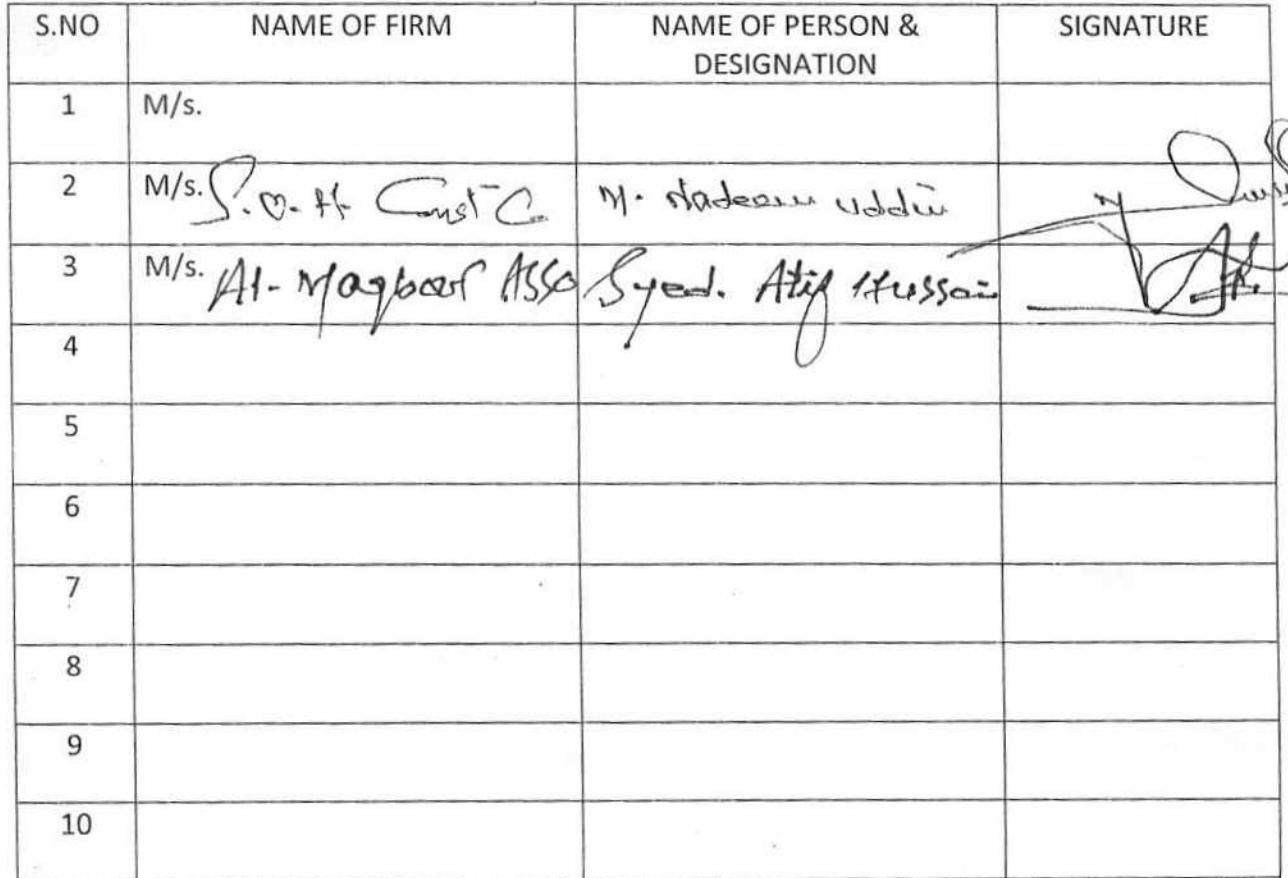 S.NO NAME OF FIRM NAME OF PERSON & SIGNATURE
DESIGNATION
1 M/s.
2 M/s. Const Co. M. Nadeem uddin
3 M/s. Al- Asso Syed. Atif Hussain
4
5
6
7
8
9
10